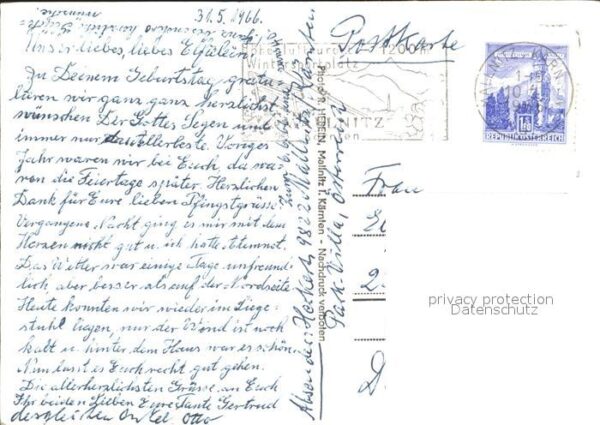 31.5.1966.
Unser liebes, liebes Elfielein!
Zu Deenem Geburtstag gratu-
lieren wir ganz ganz herzlichst
wünschen Dir Gottes Segen und
immer nur das Allerbeste. Voriges
Jahr waren wir bei Euch, da wa-
ren die Feiertage später. Herzlichen
Dank für Eure lieben Pfingstgrüsse.
Vergangene Nacht ging es mir mit dem
Herzen nicht gut u. ich hatte Atemnot.
Das Wetter war einige Tage unfreund-
lich, aber besser als auf der Nordseite
Heute konnten wir wieder im Liege-
stuhl liegen, nur der Wind ist noch
kalt u. hinter dem Haus war es schön.
Nun lasst es Euch recht gut gehen.
Die allerherzlichsten Grüsse an Euch
Ihr beiden Lieben Eure Tante Gertrud
desgleichen Onkel Otto
Postkarte
1200 m
REPUBLIK ÖSTERREICH
Mallnitz, Kärnten - Nachdruck verboten
Absender: Heckert, 9822 Mallnitz Kärnten
Villa, Österreich
Frau
D
privacy protection
Datenschutz